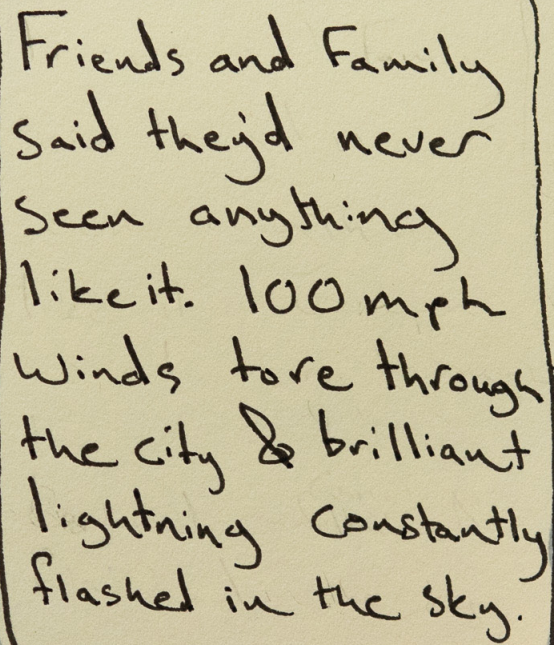 Friends and Family
said they'd never
seen anything
like it. 100 mph
winds tore through
the city & brilliant
lightning constantly
flashed in the sky.